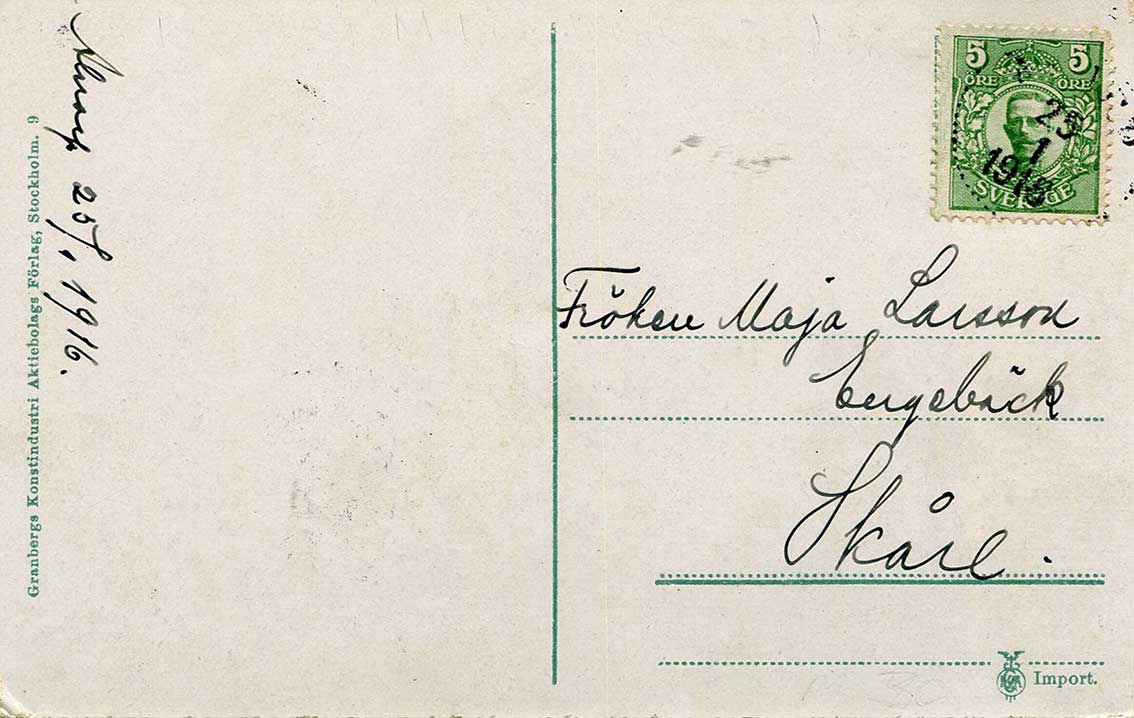 25/1 1916.
Granbergs Konstindustri Aktiebolags Förlag, Stockholm. 9
5 5
ÖRE ÖRE
SVERIGE
25
1
1916
Fröken Maja Larsson
Engebäck
Skåre.
Import.